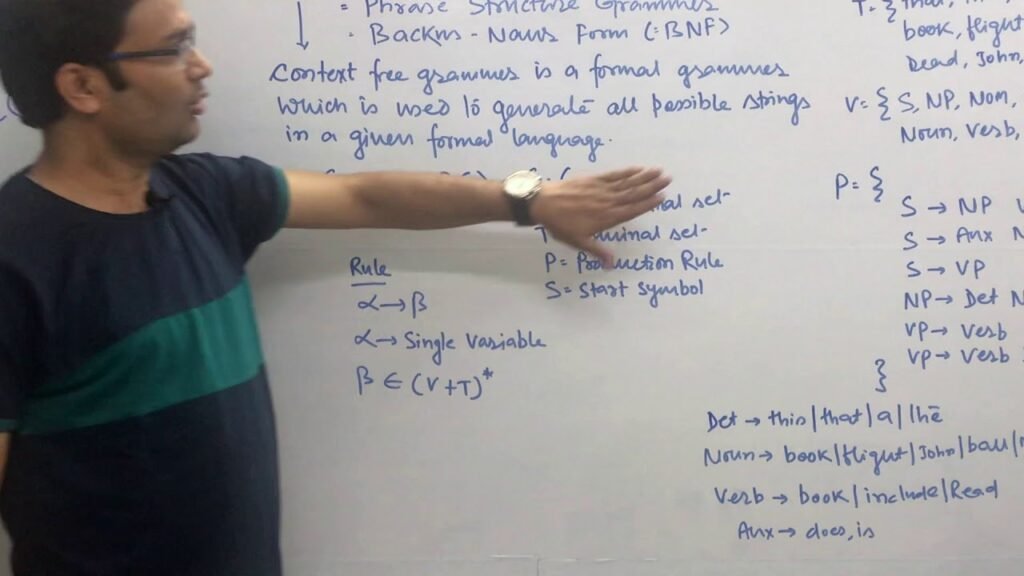 = Phrase Structure Grammer
. Backus - Naus Form (:BNF)
Context free grammer is a formal grammer
which is used to generate all possible strings
in a given formal language.
nal set
T minal set
P = Production Rule
S = Start Symbol
Rule
α → β
α → Single Variable
β ∈ (V+T)*
T = {
book, flight
Read, John,
V = { S, NP, Nom,
Noun, Verb,
P = {
S → NP
S → Aux N
S → VP
NP → Det N
VP → Verb
VP → Verb
}
Det → this | that | a | the
Noun → book | flight | John | ball |
Verb → book | include | Read
Aux → does, is